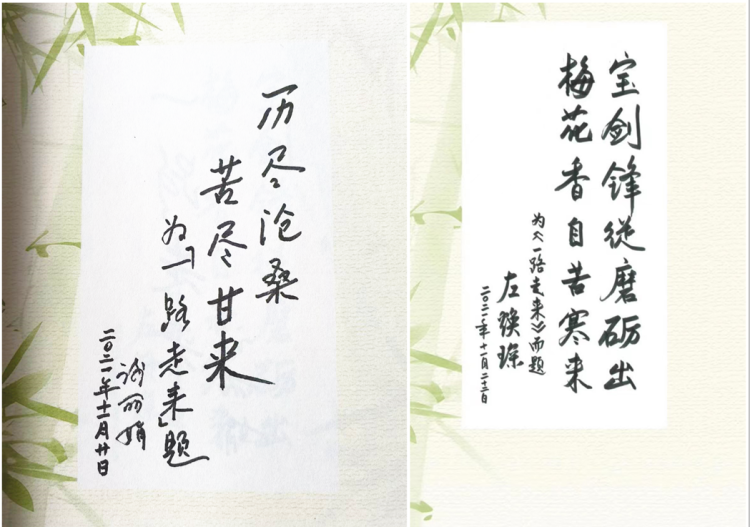 历尽沧桑
苦尽甘来
为「一路走来」题
二〇二一年十一月廿日
宝剑锋從磨砺出
梅花香自苦寒来
为《一路走来》而题
左焕琛
二〇二一年十一月二十二日